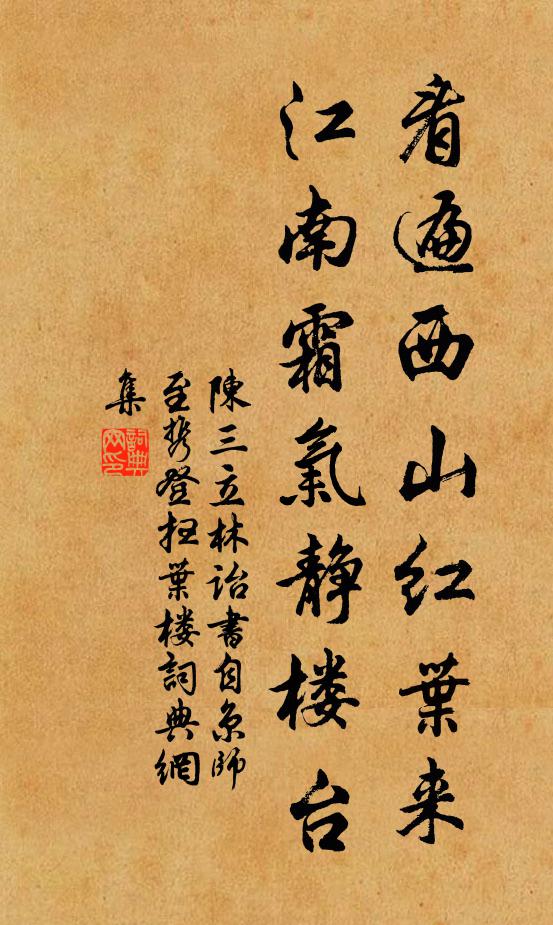 看遍西山红葉来
江南霜氣静楼台
陳三立林詒書自京師
至携登扫葉楼詞典網
集
詞典網印